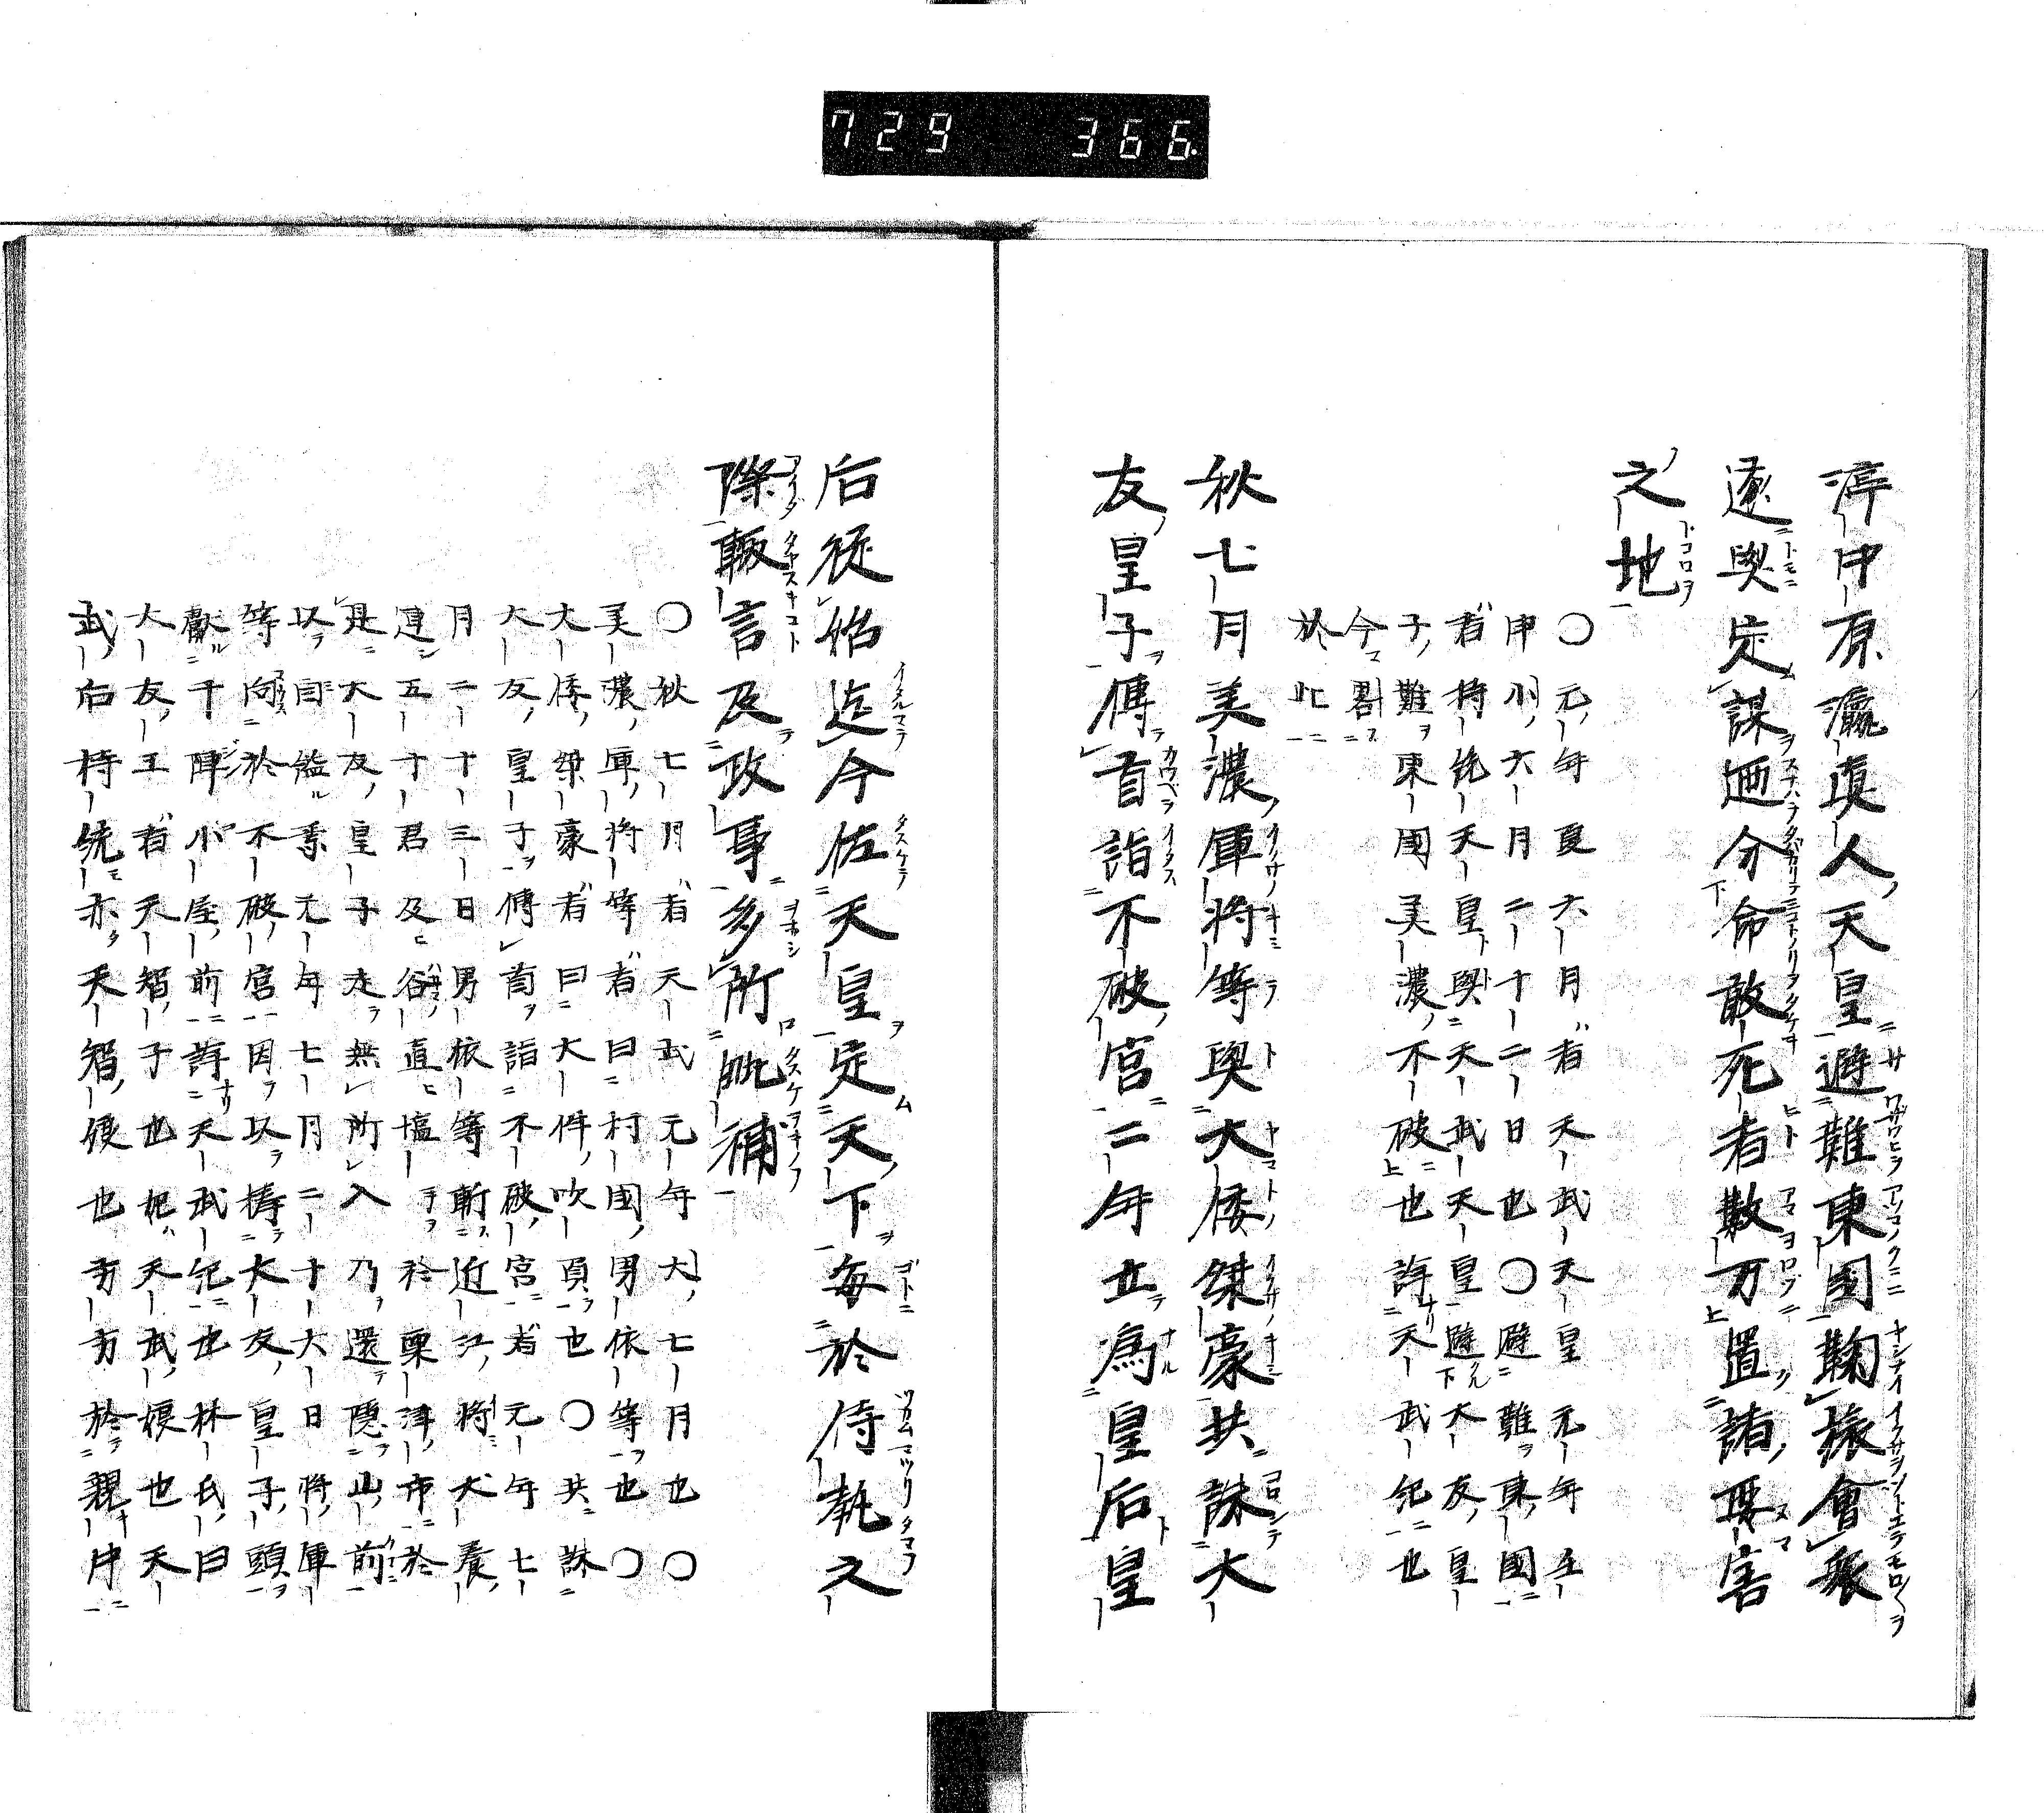 729 366
渟中原瀛真人天皇避難東國鞠旅會衆
遂與定謀迺分命敢死者數万置諸要害
之地
〇元年夏六月者天武天皇元年壬
申小六月二十二日也〇避難東國
者持統天皇與天武天皇避大友皇
子難東國美濃不破也詳天武紀也
今畧
於此
秋七月美濃軍將等與大倭桀豪共誅大
友皇子傳首詣不破宮二年立為皇后皇
后從始迄今佐天皇定天下每於侍執之
際輙言及政事多所毗補
〇秋七月者天武元年大七月也〇
美濃軍將等者曰村國男依等也〇
大倭桀豪者曰大伴吹負也〇共誅
大友皇子傳首詣不破宮者元年七
月二十三日男依等斬近江將犬養
連五十君及谷直塩手於粟津市於
是大友皇子走無所入乃還隱山前
以自縊焉元年七月二十六日將軍
等向於不破宮因以捧大友皇子頭
獻千陣小屋前詳天武紀也林氏曰
大友王者天智子也妃天武娘也天
武后持統亦天智娘也方方於親中